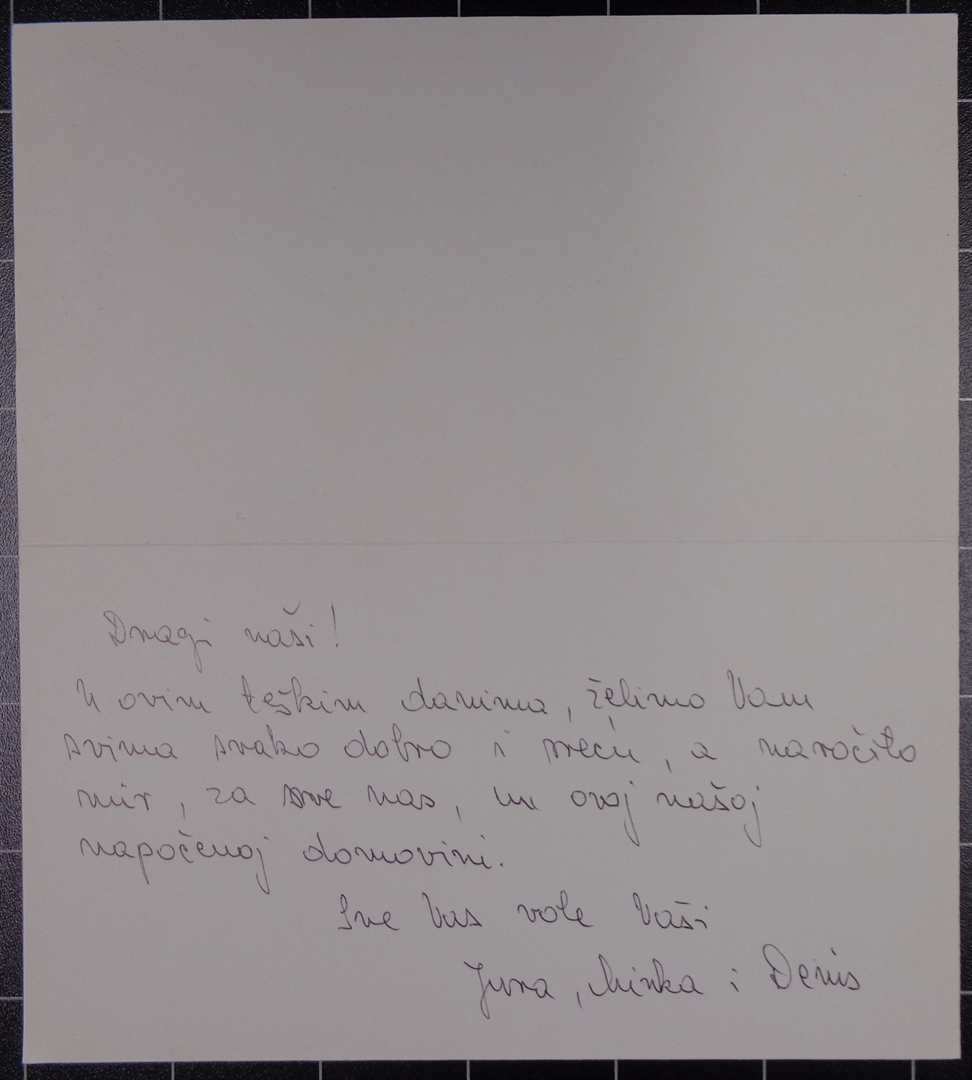 Dragi naši!
U ovim teškim danima, želimo Vam
svima svako dobro i sreću, a naročito
mir, za sve nas, u ovoj našoj
napaćenoj domovini.
Sve Vas vole Vaši
Jura, Minka i Denis